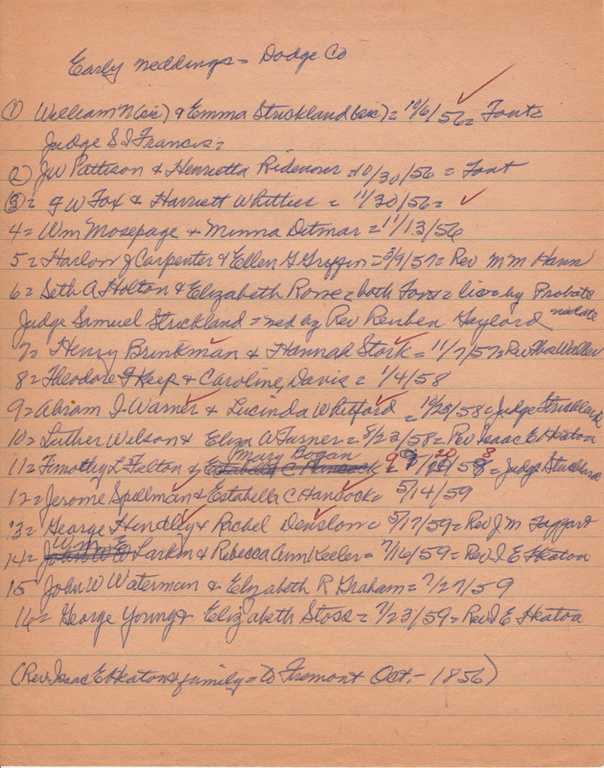 Early Weddings = Dodge Co
① William N (sic) & Emma Strickland (sic) = 10/6/56 = Font =
Judge S I Francis =
② JW Pattison & Henrietta Ridenour = 10/30/56 = Font
③ = J W Fox & Harriett Whittier = 11/30/56 =
4 = Wm Mosepage & Minna Ditmar = 11/13/56
5 = Harlon J Carpenter & Ellen G Griffin = 3/9/57 = Rev M M Haun
6 = Seth A Holton & Elizabeth Rorre = both Font = lic by Probate
Judge Samuel Strickland = med by Rev Reuben Gaylord no date
7 = Henry Brinkman & Hannah Stork = 11/7/57 = Rev Thos Waller
8 = Theodore F Keep & Caroline Davis = 1/4/58
9 = Abram I Warner & Lucinda Whitford = 10/23/58 = Judge Strickland
10 = Luther Wilson & Eliza A Turner = 8/23/58 = Rev Isaac E Heaton
11 = Timothy L Felton & Mary Bogan 9/20/58 = Judge Strickland
12 = Jerome Spellman & Estabella C Handcock = 5/14/59
13 = George Hindley & Rachel Denslow = 5/17/59 = Rev J M Taggart
14 = Wm E Larkin & Rebecca Ann Keeler = 7/14/59 = Rev I E Heaton
15 John W Waterman & Elyzabeth R Graham = 7/27/59
16 = George Young & Elizabeth Stose = 7/23/59 = Rev I E Heaton
(Rev. Isaac E Heaton & family = to Fremont Oct. - 1856)